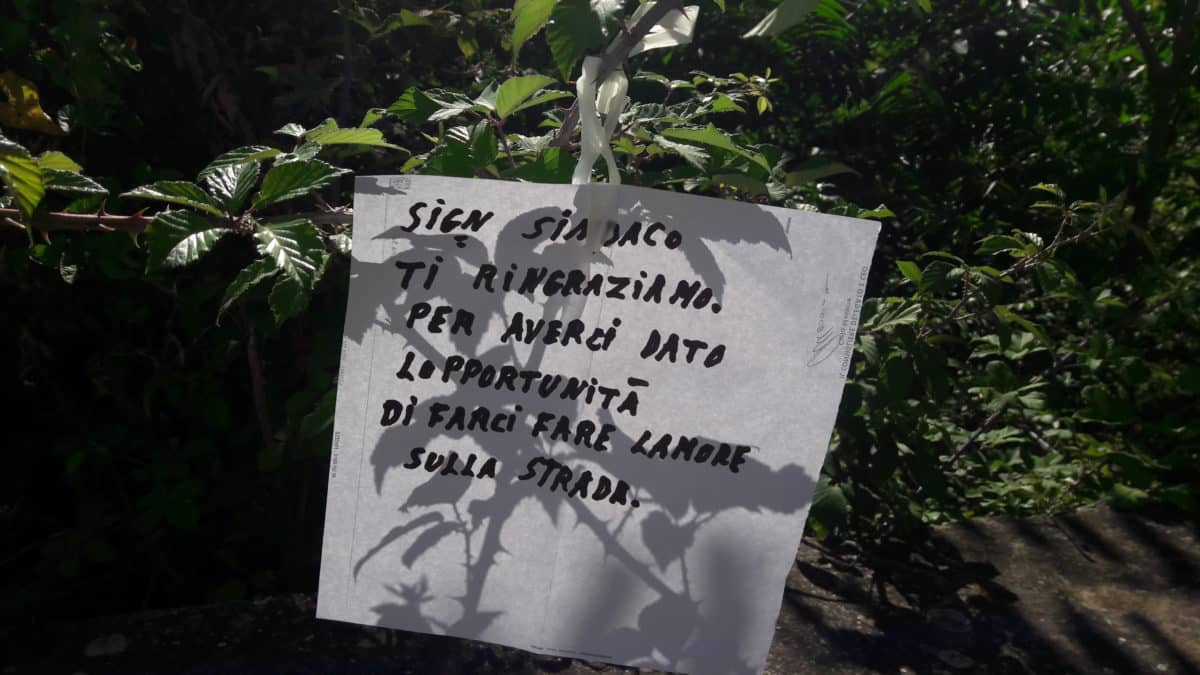 SIGN SINDACO
TI RINGRAZIAMO.
PER AVERCI DATO
LOPPORTUNITÀ
DI FARCI FARE LAMORE
SULLA STRADA.